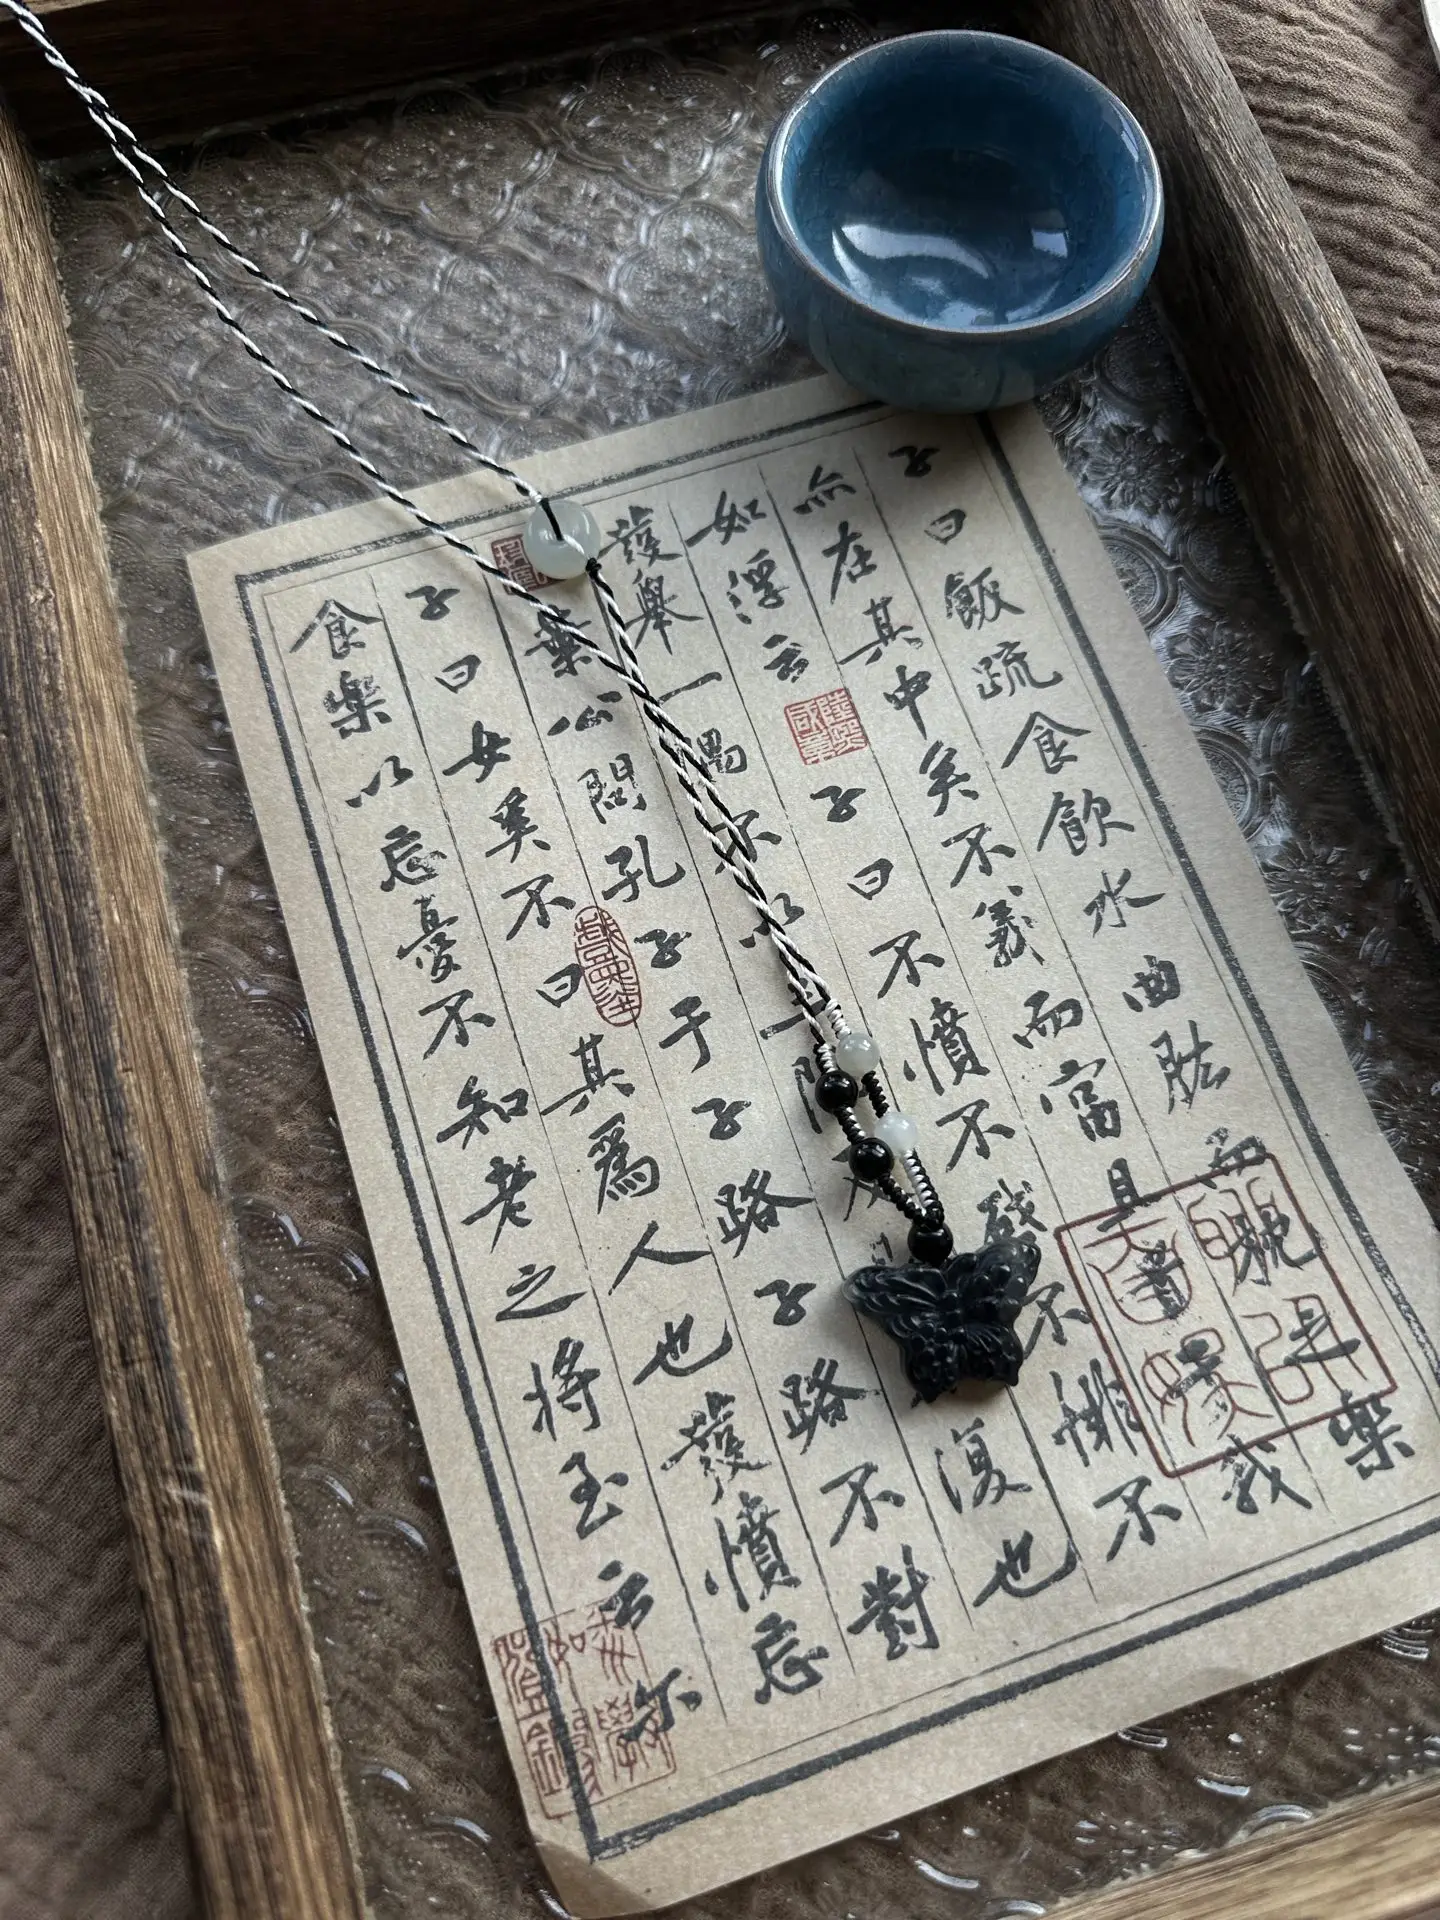 子曰飯疏食飲水曲肱而枕之樂
亦在其中矣不義而富且貴於我
如浮云子曰不憤不啟不悱不
發舉一隅不以三隅反則復也
葉公問孔子于子路子路不對
子曰女奚不曰其爲人也發憤忘
食樂以忘憂不知老之將至云尔